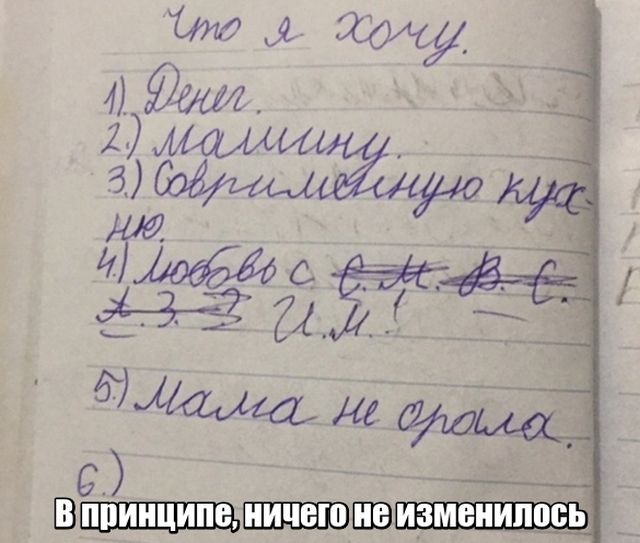 Что я хочу.
1) Денег.
2.) машину.
3.) Совримменную кух-
ню.
4.) Любовь с С. М. В. С.
А. З. И.М.!
5.) Мама не орала.
6.)
В принципе, ничего не изменилось